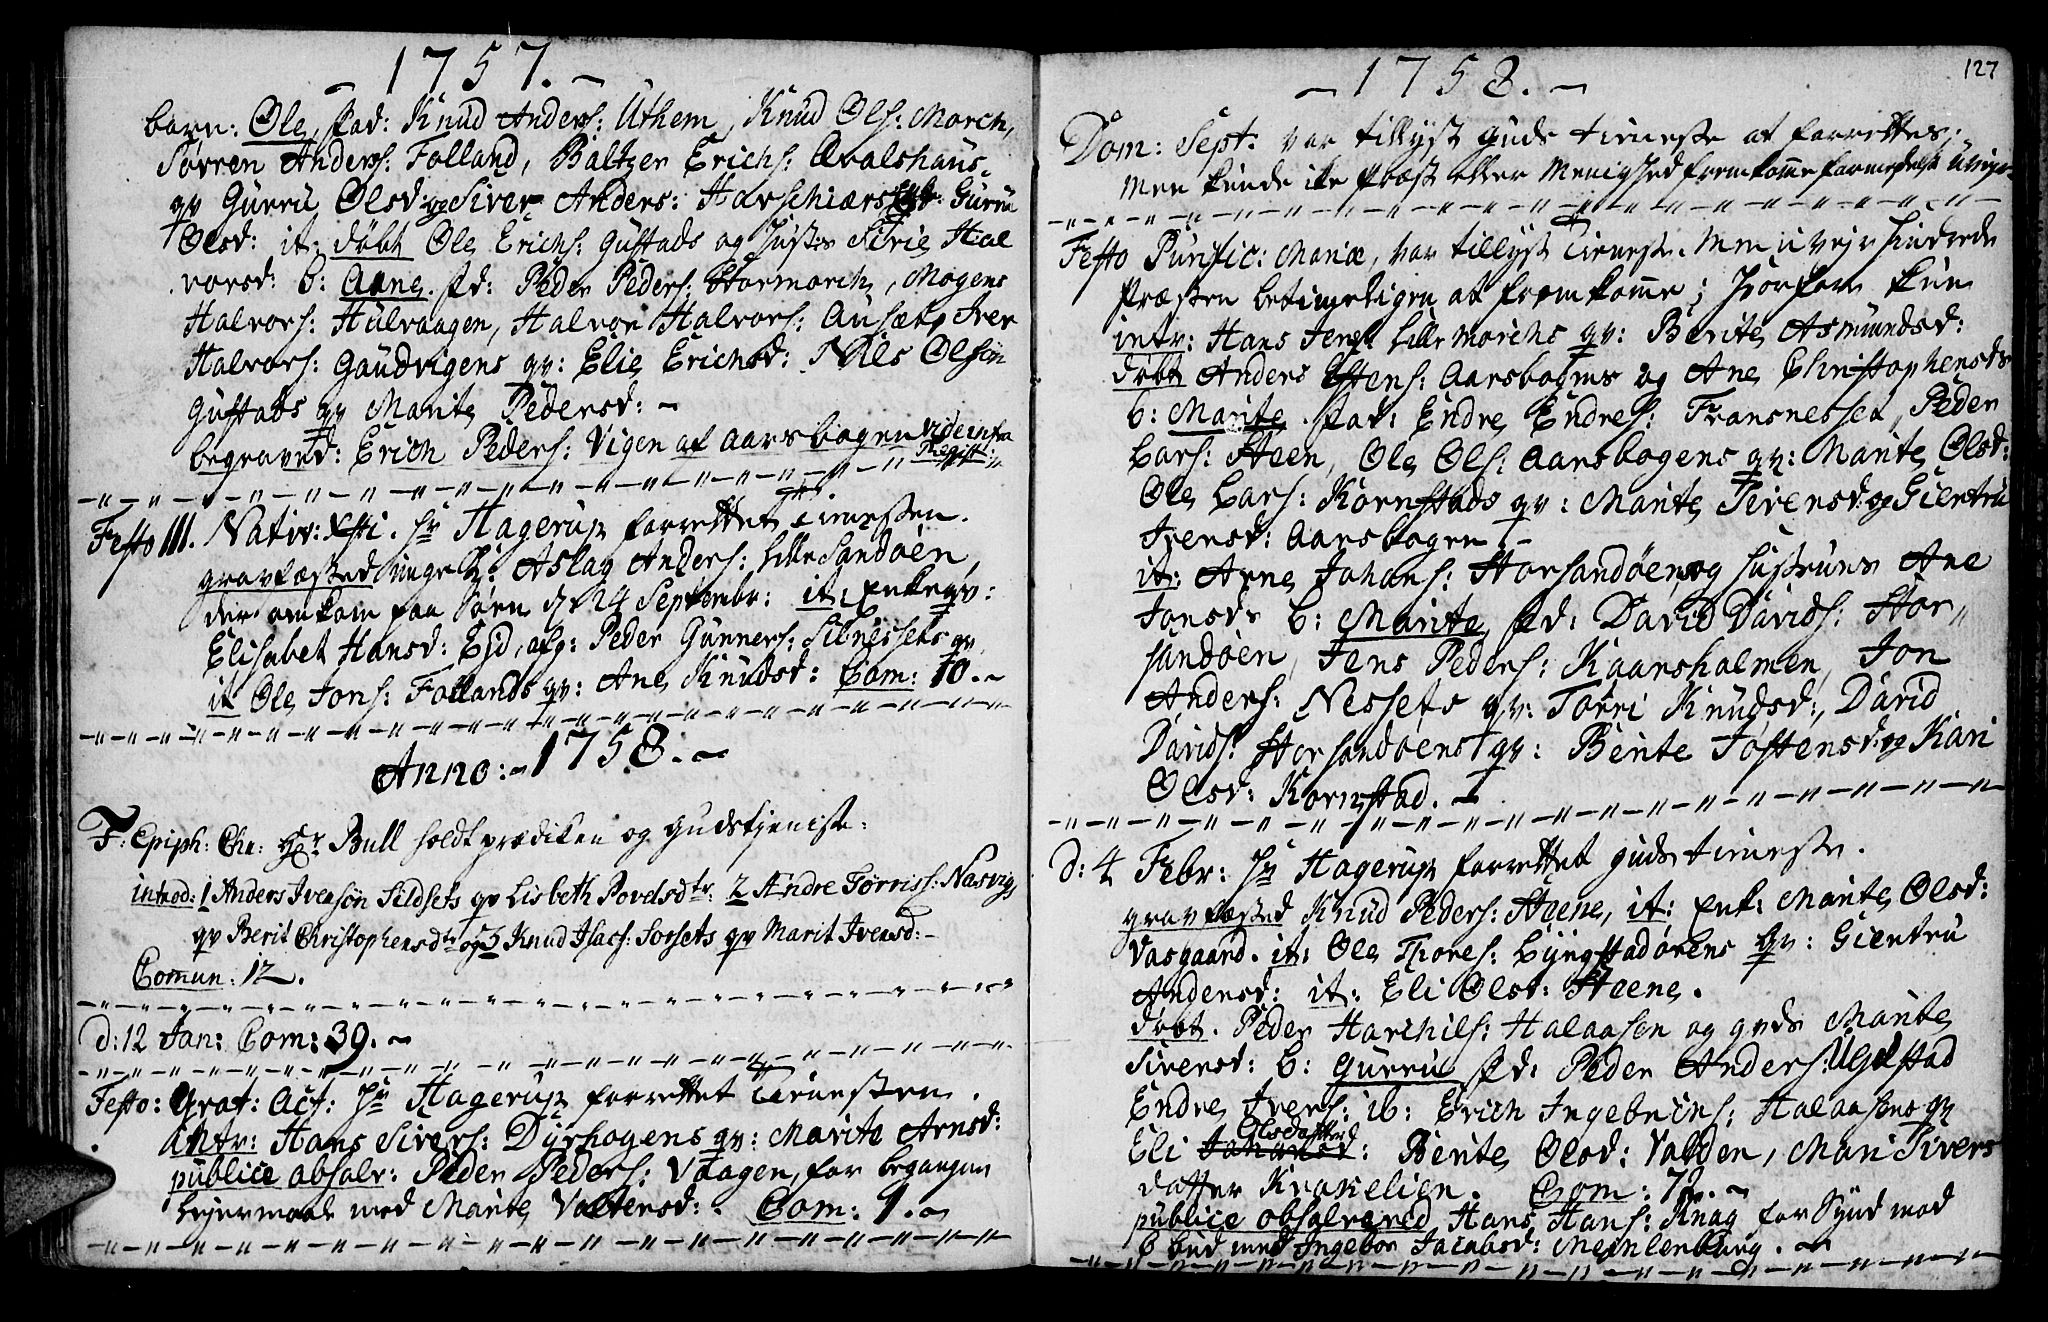 - 1757. -
barn: Ole, fad: Knud Anders: Uthem, Knud Ols: Morch,
Sørren Anders: Folland, Baltzer Erichs: Qvalshaus-
qv Gurru Olsd: og Siver Anders: Horschiærs Gurru
Olsd: it: døbt Ole Erichs: Gustads og Hustr Siri Hal
vorsd: b: Anne. fd: Peder Peders: Stormorch, Mogens
Halvors: Hulvaagen, Halvor Halvors: Ausæt, Iver
Halvors: Gaudvigens qv: Elie Erichsd: Niels Olsøn
Gustads qv Marite Pedersd: -
begraved: Erich Peders: Vigen af Aarsbogen vide infra
Regist:
Festo III. Nativ: Xsti. Hr Hagerup forrettet tienesten.
gravfæsted unge k: Aslag Anders: lille Sandøen,
der omkom paa Søen d 24 Septembr: it: Enkeqv:
Elisabet Hansd: Ejd, afg: Peder Gunners: Silnessets qv
it Ole Jons: Follands qv: Ane Knudsd: Com: 10. -
Anno: - 1758. -
F: Epiph: Chr: Hr Bull holdt prædiken og Gudstjeniste:
introd: 1 Anders Iversøn Sildsets qv Lisbeth Povelsdtr: 2 Andre Tørriss: Nasvig
qv Berit Christophersdtr og 3 Knud Isacs: Sorsets qv Marit Iversd: -
Comun: 12.
d: 12 Jan: Com: 39. -
Festo: Grat: Act: Hr Hagerup forrettet tienesten.
intr: Hans Sivers: Dyrhogens qv: Marite Arnsd:
publice absolv: Peder Peders: Vaagen, for begangen
Leiermaal med Marite Voltensd: . Com: 9. -
- 1758. -
127
Dom: Sept: var tillyst Guds tieneste at forrettes,
Men kunde ike Præst eller Menighed fremkomme formedelst Uveir-
Festo Purific: Mariæ, var tillyst Tieneste. Men uvejr hindrede
Præsten betimeligen at fremkomme; Hvorfor kun
intr: Hans Jens: lille Morchs qv: Berite Asmundsd:
døbt Anders Stens: Aarsbogens og Ane Christophersds
b: Marite. fad: Endre Endres: Fransnesset, Peder
Lars: Steen, Ole Ols: Aarsbogens qv: Marite Olsd:
Ole Lars: Kornstads qv: Marite Siversd: og Giertru
Iversd: Aarsbogen. -
it: Arne Johans: Storsandøen og Hustruns Ane
Jonsds b: Marite fd: David Davids: Stor-
sandøen, Jens Peders: Kaarsholmen, Jon
Anders: Nessets qv: Torri Knudsd:, David
Davids: Storsandøens qv: Berite Jostensd: og Kari
Olsd: Kornstad. -
d: 4 Febr: Hr Hagerup forrettet Guds tieneste.
gravfæsted Knud Peders: Steene, it: Enk: Marite Olsd:
Vasgaard. it: Ole Thores: Lyngstadørens qv: Giertru
Andersd: it: Eli Olsd: Steene.
døbt. Peder Harchils: Halaasen og qvds Marite
Siversd: b: Gurru fd: Peder Anders: Ugelstad
Endre Ivers: ib: Erich Ingebrics: Halaasens qv
Eli Olsdatter Johansd: Berite Olsd: Valden, Mari Sivers
datter Kvakelien. Com: 72. -
publice absolvered Hans Hans: Knag for Synd mod
6 bud med Ingebor Jacobsd: Mechlenburg. -